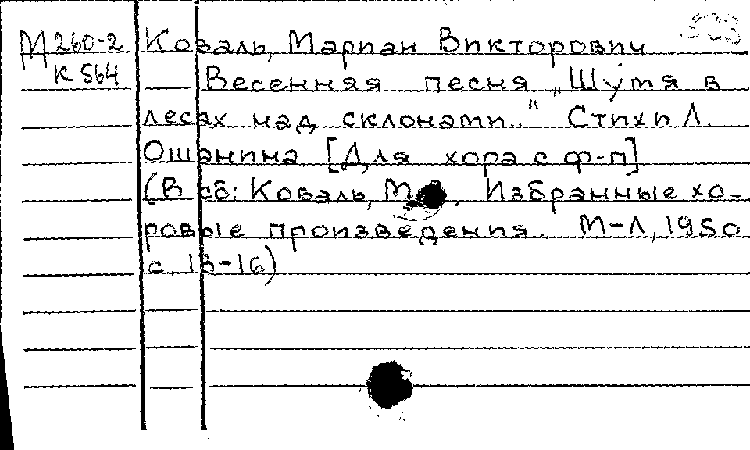 М 260-2 Коваль, Мариан Викторович
К 564 Весенняя песня „Шумя в
лесах над склонами.." Стихи Л.
Ошанина [Для хора с ф-п]
(В сб: Коваль, М.В. Избранные хо-
ровые произведения. М-Л, 1950
с. 13-16)